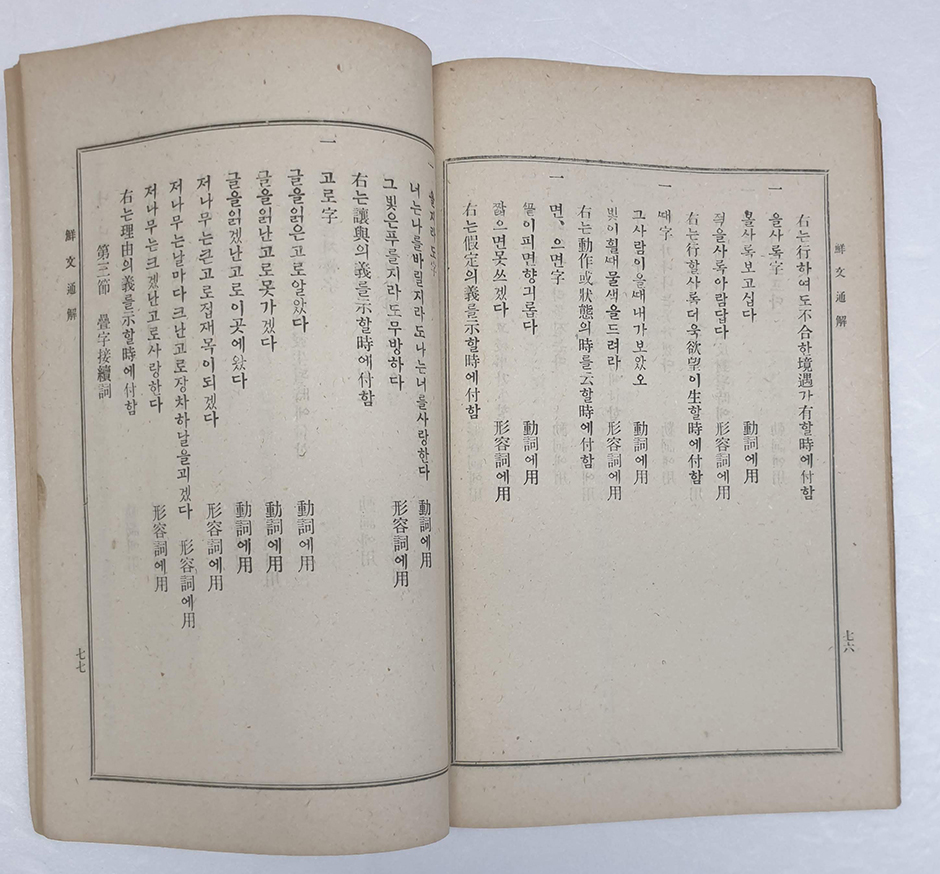 鮮文通解
右는行하여도不合한境遇가有할時에付함
一 을사록字
볼사록보고십다 動詞에用
젹을사록아람답다 形容詞에用
右는行할사록더욱欲望이生할時에付함
一 때字
그사람이올때내가보았오 動詞에用
빛이흴때물색을드려라 形容詞에用
右는動作或狀態의時를云할時에付함
一 면、으면字
꽃이피면향긔롭다 動詞에用
짧으면못쓰겠다 形容詞에用
右는假定의義를示할時에付함
七六
一 을지라도字
너는나를바릴지라도나는너를사랑한다 動詞에用
그빛은푸를지라도무방하다 形容詞에用
右는讓與의義를示할時에付함
一 고로字
글을읽은고로알았다 動詞에用
글을읽난고로못가겠다 動詞에用
글을읽겠난고로이곳에왔다 動詞에用
저나무는큰고로집재목이되겠다 形容詞에用
저나무는날마다크난고로장차하날을괴겠다 形容詞에用
저나무는크겠난고로사랑한다 形容詞에用
右는理由의義를示할時에付함
第三節 疊字接續詞
鮮文通解
七七